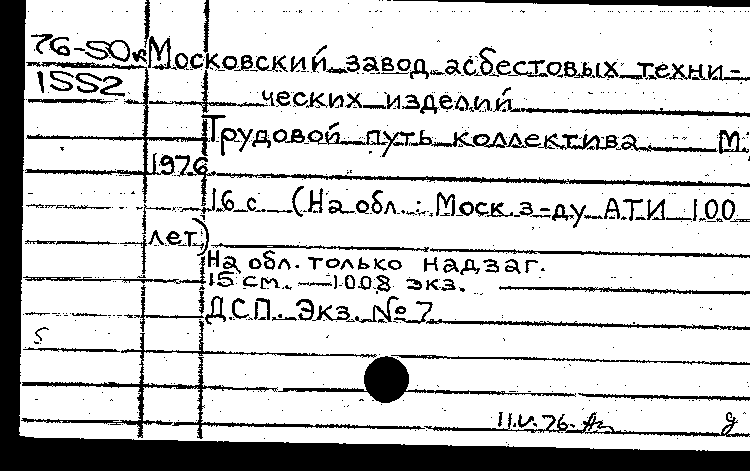 76-50к Московский завод асбестовых техни-
1552
ческих изделий
Трудовой путь коллектива М.
1976.
16 с. (На обл.: Моск. з-ду АТИ 100
лет)
На обл. только надзаг.
15 см. — 1008 экз.
ДСП. Экз. № 7.
5